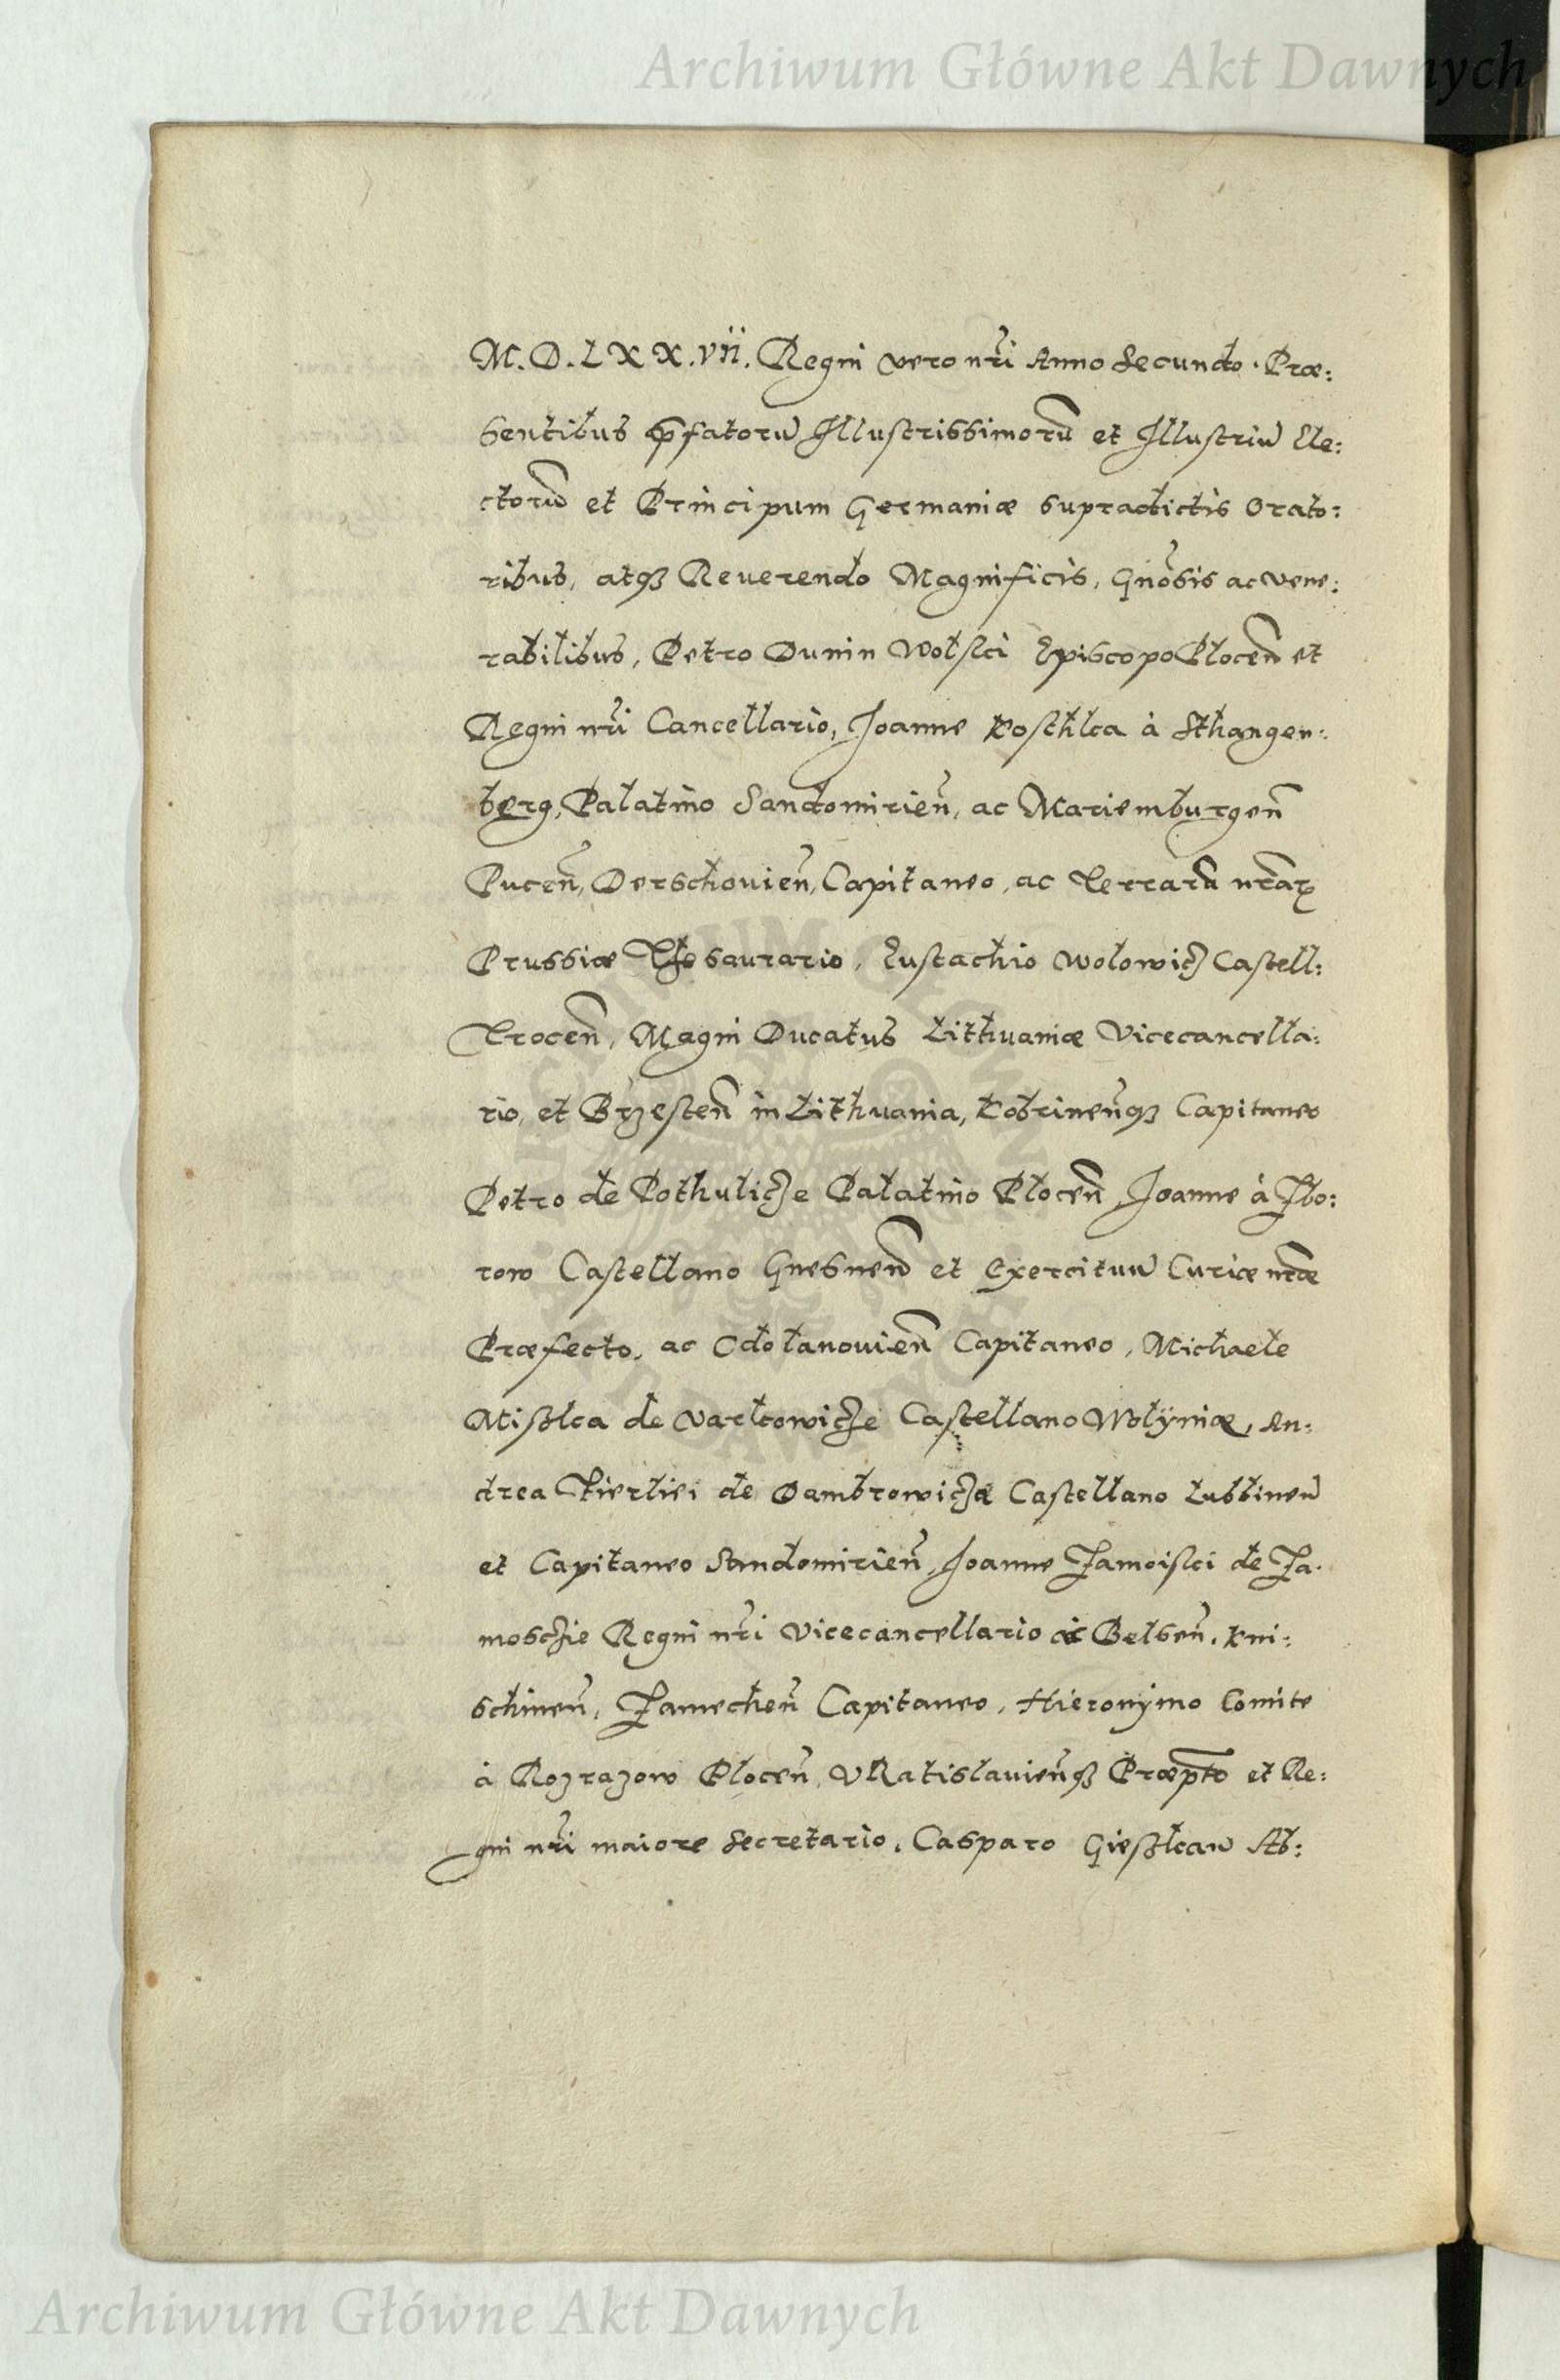 Archiwum Główne Akt Dawnych
M.D.LXX.vii. Regni vero nr̃i Anno Secundo. Præ:
sentibus p̃fatorũ Illustrissimorũ et Illustriũ Ele:
ctorũ et Principum Germaniæ supradictis Orato:
ribus, atq3 Reuerendo Magnificis, Gñosis ac vene:
rabilibus, Petro Dunin Wolski Episcopo Plocen̄ et
Regni nr̃i Cancellario, Joanne Kosthka à Sthangen:
berg, Palatino Sandomirien̄, ac Mariemburgen̄
Pucen̄, Derschouien̄, Capitaneo, ac Terrarũ nr̃aꝝ
Prussiæ Thesaurario, Eustachio Wolowicz Castell:
Trocen̄, Magni Ducatus Lithuaniæ Vicecancella:
rio, et Brzesten̄ in Lithuania, Kobrinen̄q3 Capitaneo
Petro de Pothulicze Palatino Plocen̄, Joanne à Zbo:
row Castellano Gnesnen̄ et Exercituũ Curiæ nr̃æ
Præfecto, ac Odolanouien̄ Capitaneo, Michaele
Mißka de Varkowicze Castellano Wolÿniæ, An:
drea Firliei de Dambrowicza Castellano Lublinen̄
et Capitaneo Sandomirien̄, Joanne Zamoiski de Za:
moschie Regni nr̃i Vicecancellario ac Belsen̄, Kni:
schinen̄, Zamechen̄ Capitaneo, Hieronÿmo Comite
à Rozrazow Plocen̄, VRatislauien̄q3 Præpto et Re:
gni nr̃i maiore Secretario, Casparo Gießkaw Ab:
Archiwum Główne Akt Dawnych